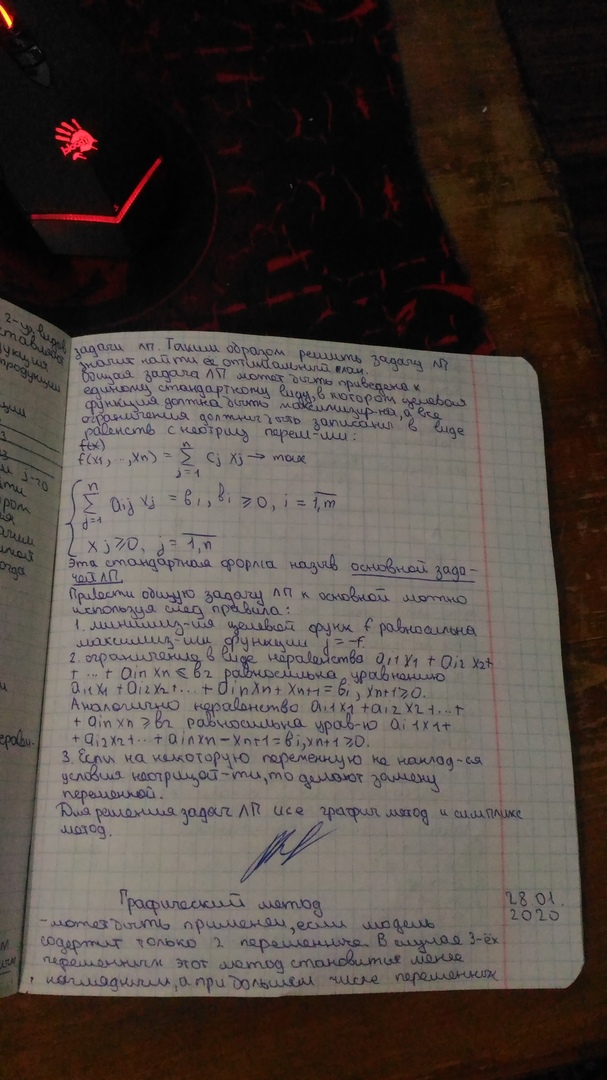 задачи ЛП. Таким образом решить задачу ЛП
значит найти её оптимальный план.
Общая задача ЛП может быть приведена к
единому стандартному виду, в котором целевая
функция должна быть максимизир-на, а все
ограничения должны быть записаны в виде
равенств с неотриц перем-ми:
f(x)
f(x₁, .., xₙ) = ∑ⁿⱼ₌₁ cⱼ xⱼ → max
∑ⁿⱼ₌₁ aᵢⱼ xⱼ = bᵢ, bᵢ ≥ 0, i = 1,m
xⱼ ≥ 0, j = 1,n
Эта стандартная форма назыв основной зада-
чей ЛП.
Привести общую задачу ЛП к основной можно
используя след правила:
1. минимиз-ия целевой функ f равносильна
максимиз-ии функции g = -f.
2. ограничение в виде неравенства aᵢ₁x₁ + aᵢ₂ x₂+
+ ... + aᵢₙ xₙ ≤ b₂ равносильна уравнению
aᵢ₁x₁ + aᵢ₂x₂+... + aᵢₙxₙ + xₙ₊₁ = bᵢ, xₙ₊₁ ≥ 0.
Аналогично неравенство aᵢ₁x₁ + aᵢ₂x₂ +...+
+ aᵢₙxₙ ≥ b₂ равносильна урав-ю aᵢ₁x₁+
+ aᵢ₂x₂+...+ aᵢₙxₙ - xₙ₊₁ = bᵢ, xₙ₊₁ ≥ 0.
3. Если на некоторую переменную не наклад-ся
условия неотрицат-ти, то делают замену
переменной.
Для решения задач ЛП исп график метод и симплекс
метод.
28.01.
2020
Графический метод
-может быть применен, если модель
содержит только 2 переменные. В случае 3-ёх
переменных этот метод становиться менее
наглядным, а при большем числе переменных